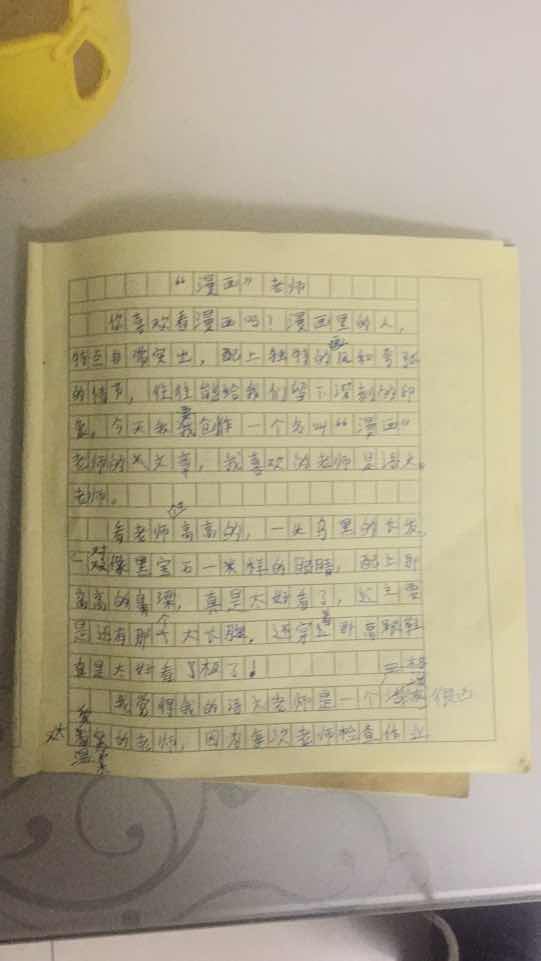 “漫画”老师
你喜欢看漫画吗？漫画里的人，
特点非常突出，配上独特的画和夸张
的情节，往往能给我们留下深刻的印
象，今天我要创作一个名叫“漫画”
老师的文章，我喜欢的老师是语文
老师。
老师高高的，一头乌黑的长发，
一对像黑宝石一样的眼睛，配上那
高高的鼻梁，真是太好看了，
是还有那个大长腿，还穿着高跟鞋
真是太好看了极了！
我觉得我的语文老师是一个
的老师，因为每次老师检查作业